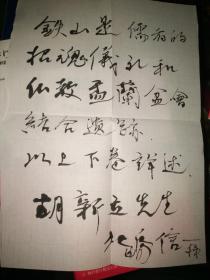 鉄山是儒教的
招魂儀礼和
仏教盂蘭盆會
結合遺跡
以上下卷詳述
胡新立先生
信